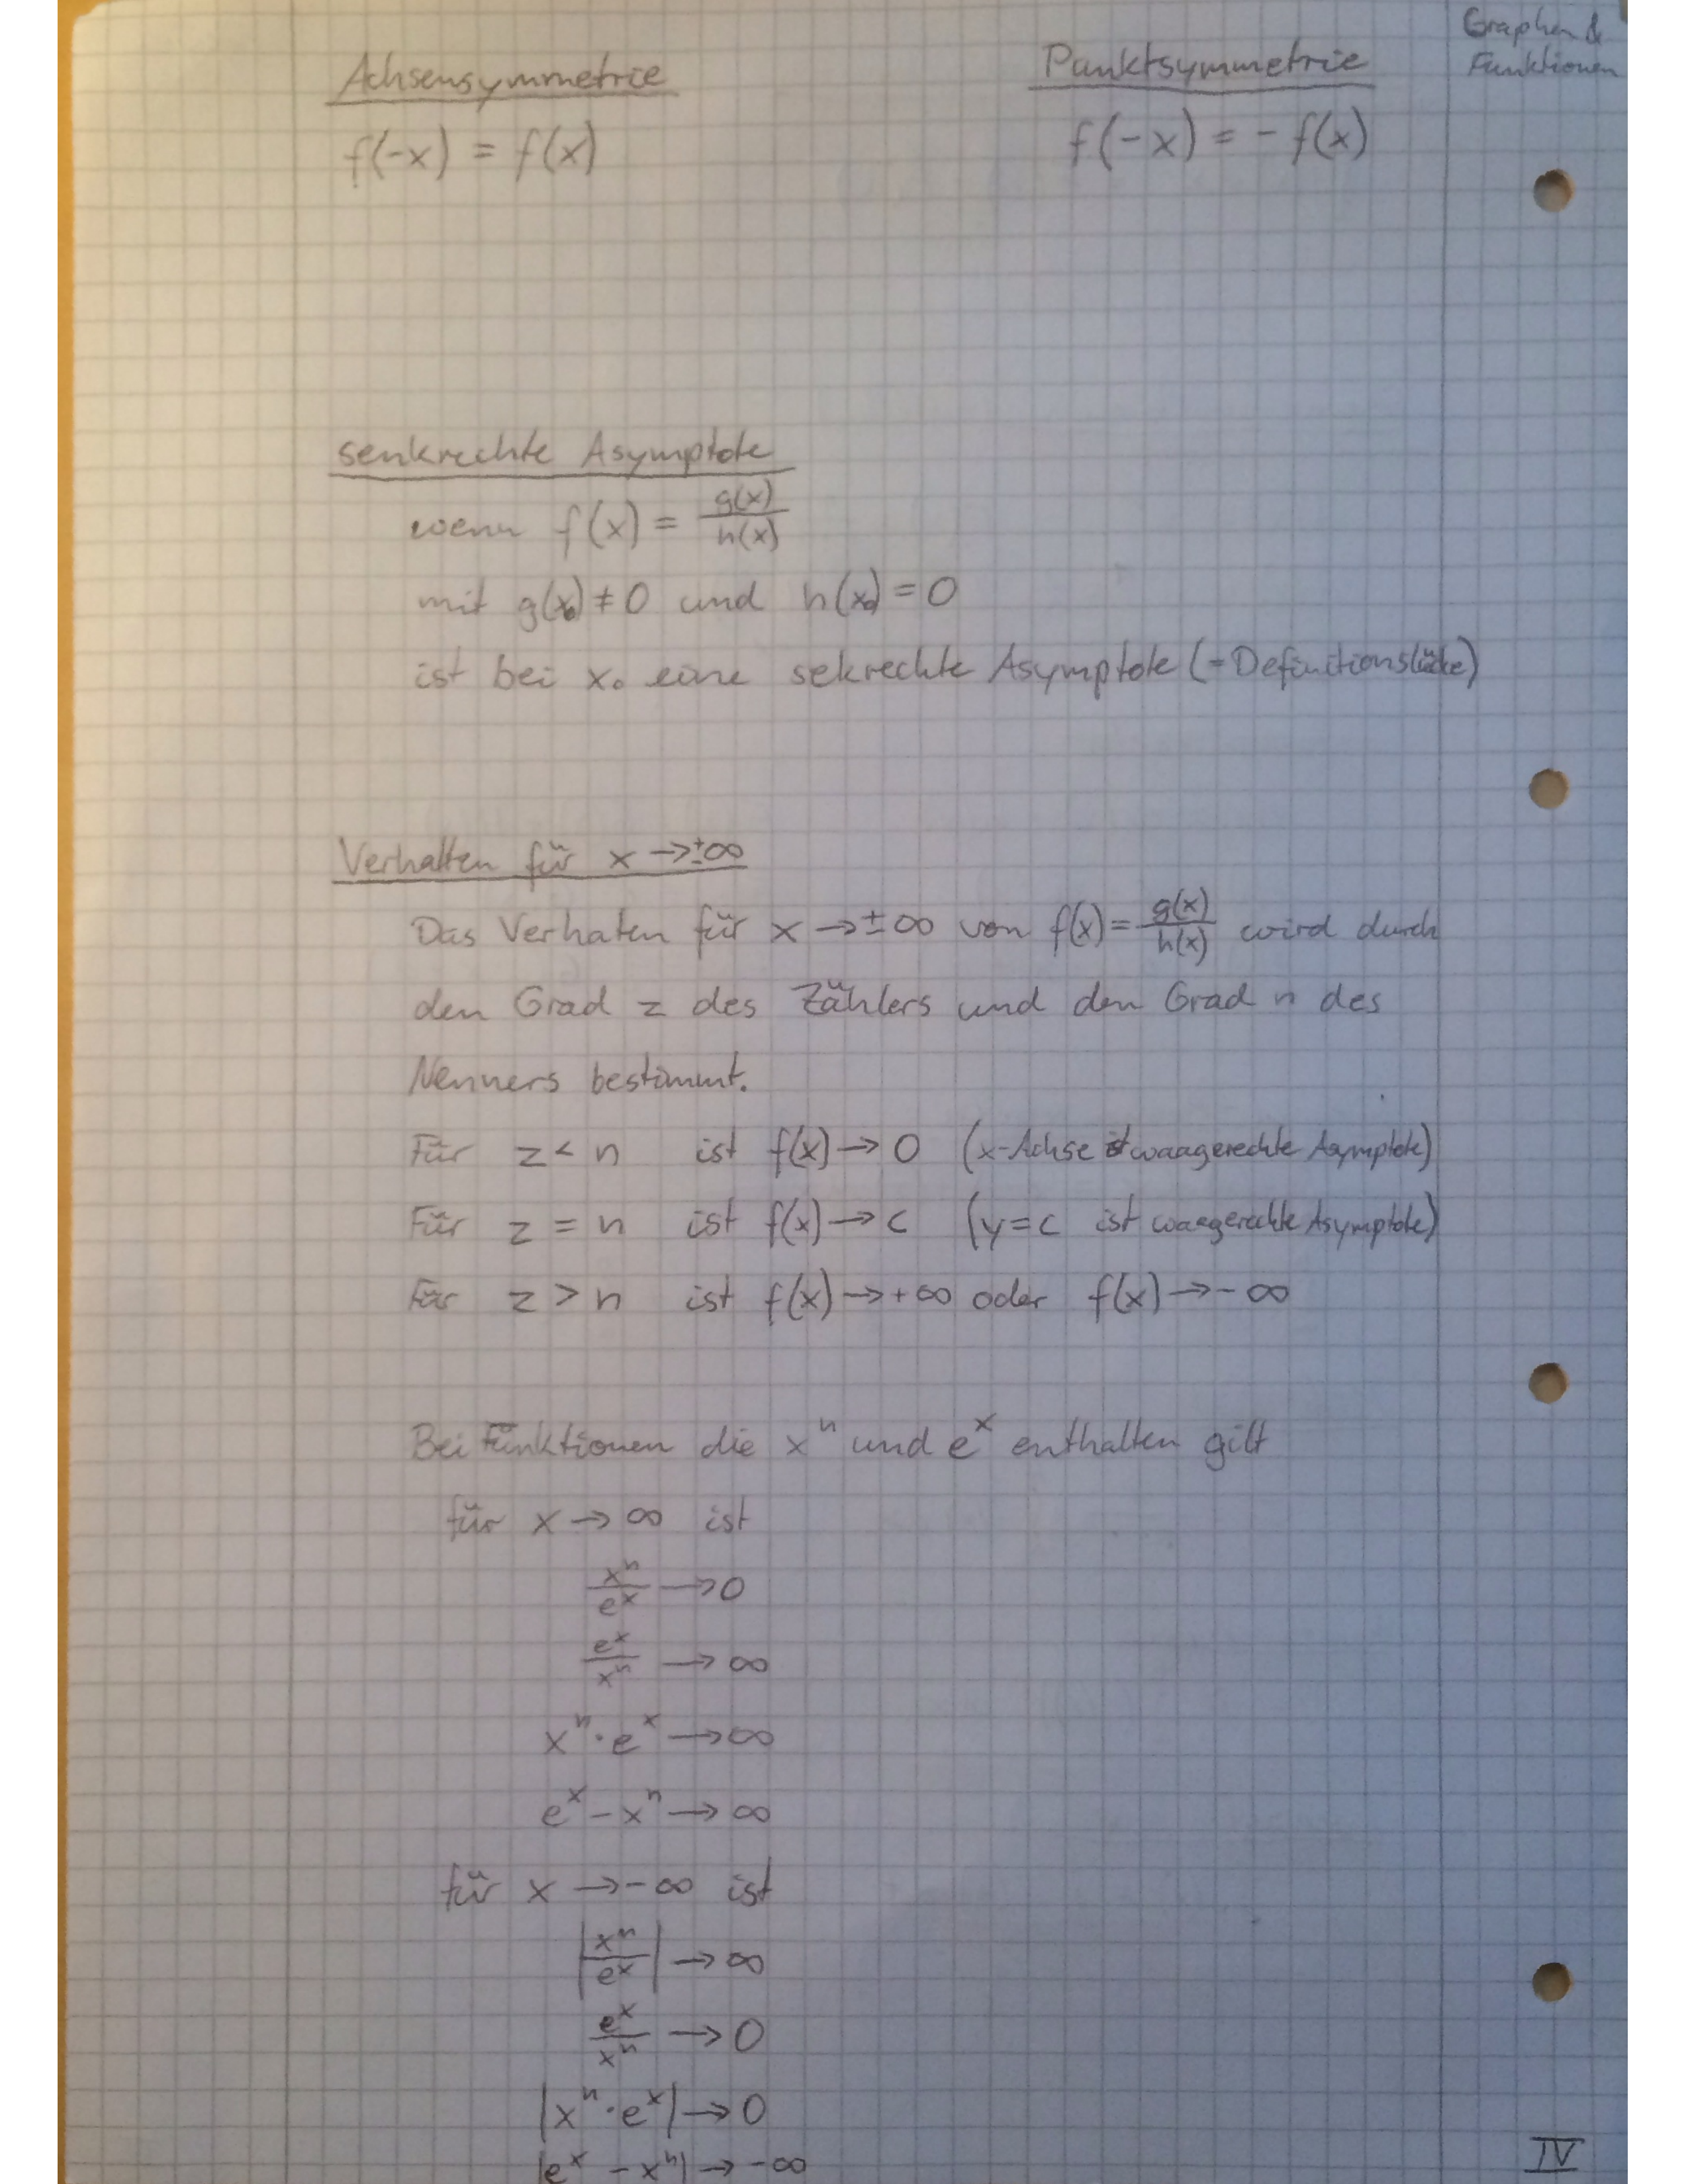 Graphen &
Funktionen
Achsensymmetrie
Punktsymmetrie
f(-x) = f(x)
f(-x) = - f(x)
senkrechte Asymptote
wenn f(x) = g(x)/h(x)
mit g(x₀) ≠ 0 und h(x₀) = 0
ist bei x₀ eine sekrechte Asymptote (=Definitionslücke)
Verhalten für x → ±∞
Das Verhaten für x → ±∞ von f(x) = g(x)/h(x) wird durch
den Grad z des Zählers und den Grad n des
Nenners bestimmt.
Für z < n ist f(x) → 0 (x-Achse ist waagerechte Asymptote)
Für z = n ist f(x) → c (y = c ist waagerechte Asymptote)
Für z > n ist f(x) → +∞ oder f(x) → -∞
Bei Funktionen die xⁿ und eˣ enthalten gilt
für x → ∞ ist
xⁿ/eˣ → 0
eˣ/xⁿ → ∞
xⁿ · eˣ → ∞
eˣ - xⁿ → ∞
für x → -∞ ist
|xⁿ/eˣ| → ∞
eˣ/xⁿ → 0
|xⁿ · eˣ| → 0
|eˣ - xⁿ| → -∞
IV